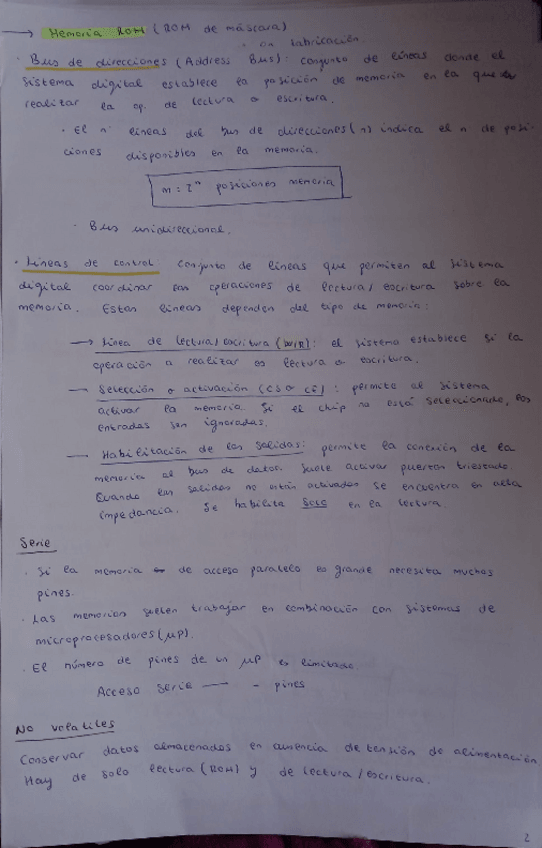 → Memoria ROM (ROM de máscara)
· on fabricación
· Bus de direcciones (Address Bus): conjunto de líneas donde el
sistema digital establece la posición de memoria en la que
realitar la op. de lectura o escritura.
· El nº líneas del bus de direcciones (n) indica el n de posi-
ciones disponibles en la memoria.
m = 2ⁿ posiciones memoria
· Bus unidireccional.
· Líneas de control conjunto de líneas que permiten al sistema
digital coordinar las operaciones de lectura/escritura sobre la
memoria. Estas líneas dependen del tipo de memoria:
→ Línea de lectura/escritura (W/R): el sistema establece si la
operación a realitar es lectura o escritura.
— Selección o activación (CS o CE): permite al sistema
activar la memoria si el chip no está seleccionado, las
entradas son ignoradas.
— Habilitación de las salidas: permite la conexión de la
memoria al bus de datos. Suele activar puertas triestado.
Cuando las salidas no están activadas se encuentra en alta
impedancia. Se habilita solo en la lectura.
Serie
· Si la memoria de acceso paralelo es grande necesita muchos
pines.
· Las memorias suelen trabajar en combinación con sistemas de
microprocesadores (μP).
· El número de pines de un μP es limitado.
Acceso serie — - pines
No volatiles
Conservar datos almacenados en ausencia de tensión de alimentación
Hay de solo lectura (ROM) y de lectura/escritura.
2